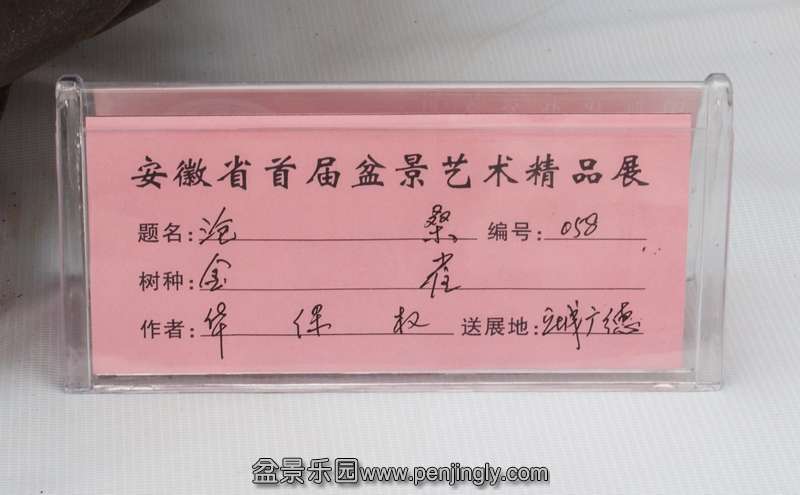 安徽省首届盆景艺术精品展
题名: 沧桑 编号: 058
树种: 金雀
作者: 华保权 送展地: 宣城广德
盆景乐园www.penjingly.com